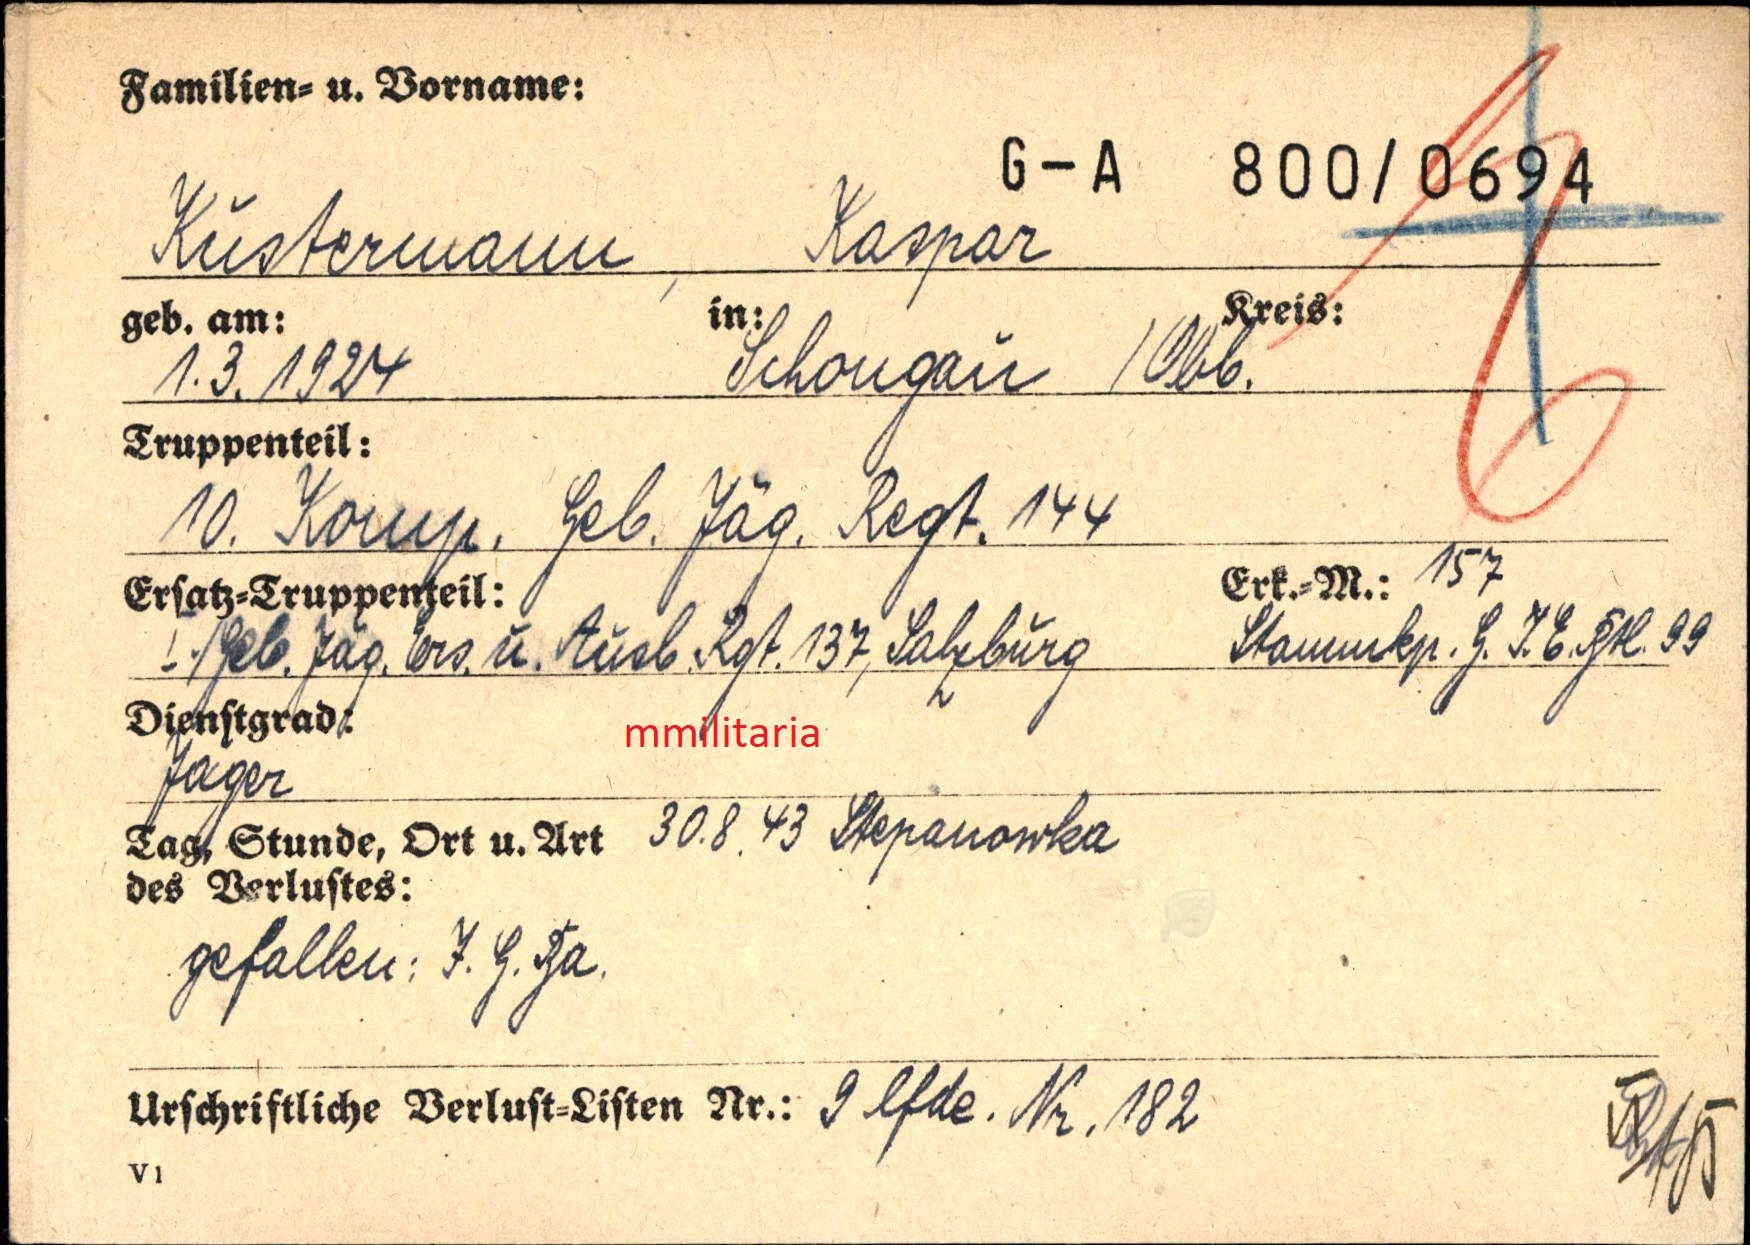 Familien- u. Vorname:
G-A 800/0694
Küstermann, Kaspar
geb. am: in: Kreis:
1.3.1924 Schongau /Obb.
Truppenteil:
10. Komp. Geb. Jäg. Regt. 144
Ersatz-Truppenteil: Erk.-M.: 157
I./Geb. Jäg. Ers. u. Ausb. Rgt. 137, Salzburg Stammkp. G. J. E. Btl. 99
Dienstgrad:
mmilitaria
Jäger
Tag, Stunde, Ort u. Art 30.8.43 Stepanowka
des Verlustes:
gefallen: J. G.
Urschriftliche Verlust-Listen Nr.: 9 lfde. Nr. 182
V1